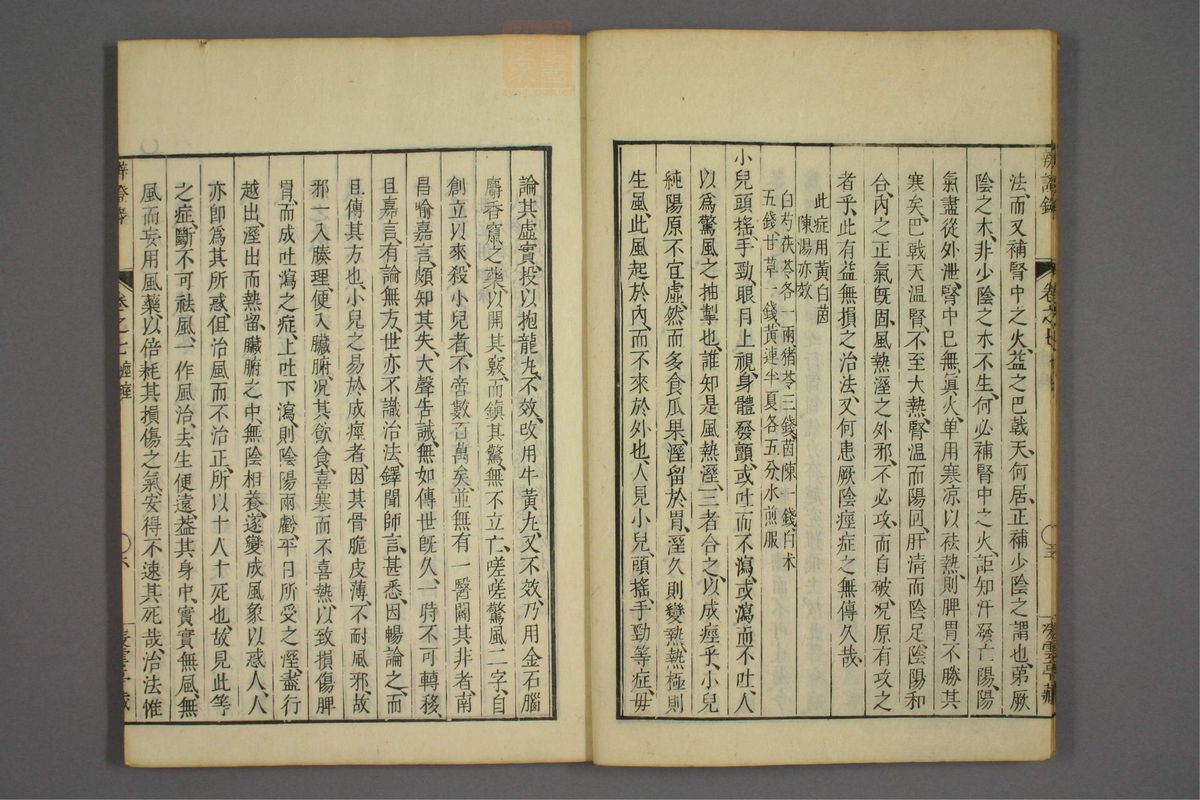 法、而又補腎中之火、益之巴戟天、何居、正補少陰之謂也、第厥
陰之木、非少陰之水不生、何必補腎中之火、詎知汗發亡陽、陽
氣盡從外泄、腎中已無眞火、單用寒凉以祛熱、則脾胃不勝其
寒矣、巴戟天溫腎、不至大熱、腎溫而陽回、肝清而陰足、陰陽和
合、內之正氣旣固、風熱溼之外邪、不必攻、而自破、况原有攻之
者乎、此有益無損之治法、又何患厥陰痙症之無傳久哉
此症用黃白茵
陳湯亦效
白芍茯苓各一兩猪苓三錢茵陳一錢白朮
五錢甘草一錢黃連半夏各五分水煎服
小兒頭搖手勁、眼目上視、身體發顫、或吐而不瀉、或瀉而不吐、人
以爲驚風之抽掣也、誰知是風熱溼、三者合之、以成痙乎、小兒
純陽原不宜虛、然而多食瓜果、溼留於胃、溼久則變熱、熱極則
生風、此風起於內、而不來於外也、人見小兒頭搖、手勁等症、毋
論其虛實、投以抱龍丸、不效、改用牛黃丸、又不效、乃用金石腦
麝香竄之藥、以開其竅、而鎭其驚、無不立亡、嗟嗟驚風二字、自
創立以來、殺小兒者、不啻數百萬矣、並無有一醫闢其非者、南
昌喻嘉言、頗知其失、大聲告誡、無如傳世旣久、一時不可轉移、
且嘉言、有論無方、世亦不識治法、鐸聞師言、甚悉、因暢論之、而
且傳其方也、小兒之易於成痙者、因其骨脆皮薄、不耐風邪、故
邪一入腠理、便入臟腑、况其飮食、喜寒而不喜熱、以致損傷脾
胃、而成吐瀉之症、上吐下瀉、則陰陽兩虧、平日所受之溼、盡行
越出、溼出而熱留、臟腑之中、無陰相養、遂變成風象、以惑人、人
亦卽爲其所惑、但治風而不治正、所以十人十死也、故見此等
之症、斷不可祛風、一作風治、去生便遠、葢其身中、實實無風、無
風而妄用風藥、以倍耗其損傷之氣、安得不速其死哉、治法惟